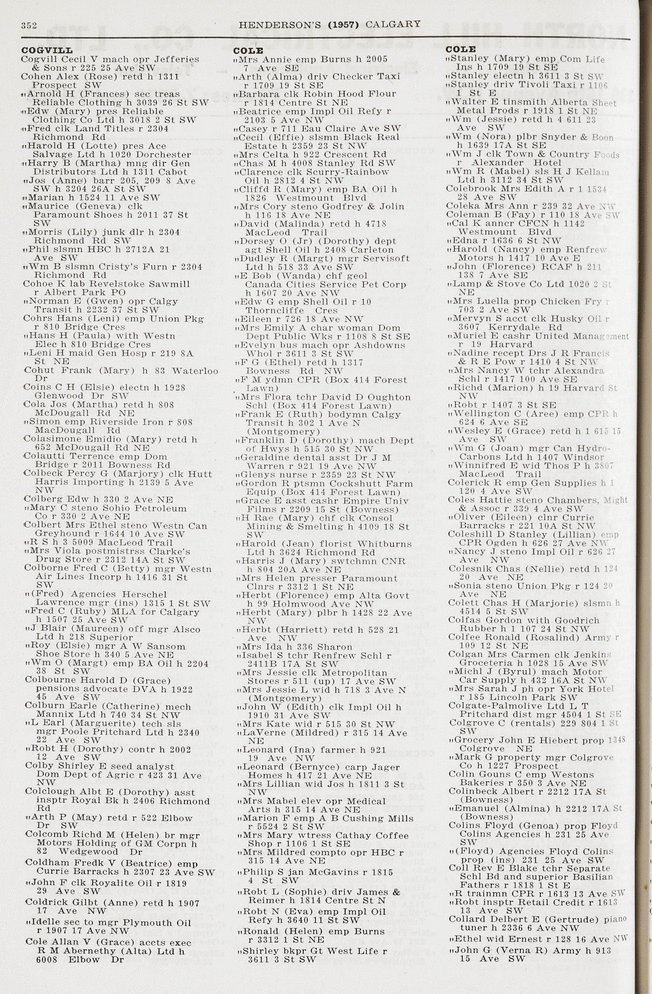 352
HENDERSON'S (1957) CALGARY
COGVILL
Cogvill Cecil V mach opr Jefferies
& Sons r 225 25 Ave SW
Cohen Alex (Rose) retd h 1311
Prospect SW
„Arnold H (Frances) sec treas
Reliable Clothing h 3039 26 St SW
„Edw (Mary) pres Reliable
Clothing Co Ltd h 3018 2 St SW
„Fred clk Land Titles r 2304
Richmond Rd
„Harold H (Lotte) pres Ace
Salvage Ltd h 1020 Dorchester
„Harry B (Martha) mng dir Gen
Distributors Ltd h 1311 Cabot
„Jos (Anne) barr 205, 209 8 Ave
SW h 3204 26A St SW
„Marian h 1524 11 Ave SW
„Maurice (Geneva) clk
Paramount Shoes h 2011 37 St
SW
„Morris (Lily) junk dlr h 2304
Richmond Rd SW
„Phil slsmn HBC h 2712A 21
Ave SW
„Wm B slsmn Cristy's Furn r 2304
Richmond Rd
Cohoe K lab Revelstoke Sawmill
r Albert Park PO
„Norman E (Gwen) opr Calgy
Transit h 2232 37 St SW
Cohrs Hans (Leni) emp Union Pkg
r 810 Bridge Cres
„Hans H (Paula) with Westn
Elec h 810 Bridge Cres
„Leni H maid Gen Hosp r 219 8A
St NE
Cohut Frank (Mary) h 83 Waterloo
Dr
Coins C H (Elsie) electn h 1928
Glenwood Dr SW
Cola Jos (Martha) retd h 808
McDougall Rd NE
„Simon emp Riverside Iron r 808
MacDougall Rd
Colasimone Emidio (Mary) retd h
652 McDougall Rd NE
Colautti Terrence emp Dom
Bridge r 2011 Bowness Rd
Colbeck Percy G (Marjory) clk Hutt
Harris Importing h 2139 5 Ave
NW
Colberg Edw h 330 2 Ave NE
„Mary C steno Sohio Petroleum
Co r 330 2 Ave NE
Colbert Mrs Ethel steno Westn Can
Greyhound r 1644 10 Ave SW
„R S h 3 5009 MacLeod Trail
„Mrs Viola postmistrss Clarke's
Drug Store r 2312 14A St SW
Colborne Fred C (Betty) mgr Westn
Air Lines Incorp h 1416 31 St
SW
„(Fred) Agencies Herschel
Lawrence mgr (ins) 1315 1 St SW
„Fred C (Ruby) MLA for Calgary
h 1507 25 Ave SW
„J Blair (Maureen) off mgr Alsco
Ltd h 218 Superior
„Roy (Elsie) mgr A W Sansom
Shoe Store h 340 5 Ave NE
„Wm O (Margt) emp BA Oil h 2204
38 St SW
Colbourne Harold D (Grace)
pensions advocate DVA h 1922
45 Ave SW
Colburn Earle (Catherine) mech
Mannix Ltd h 740 34 St NW
„L Earl (Marguerite) tech sls
mgr Poole Pritchard Ltd h 2340
22 Ave SW
„Robt H (Dorothy) contr h 2002
12 Ave SW
Colby Shirley E seed analyst
Dom Dept of Agric r 423 31 Ave
NW
Colclough Albt E (Dorothy) asst
insptr Royal Bk h 2406 Richmond
Rd
„Arth P (May) retd r 522 Elbow
Dr SW
Colcomb Richd M (Helen) br mgr
Motors Holding of GM Corpn h
82 Wedgewood Dr
Coldham Fredk V (Beatrice) emp
Currie Barracks h 2307 23 Ave SW
„John F clk Royalite Oil r 1819
29 Ave SW
Coldrick Gilbt (Anne) retd h 1907
17 Ave NW
„Idelle sec to mgr Plymouth Oil
r 1907 17 Ave NW
Cole Allan V (Grace) accts exec
R M Abernethy (Alta) Ltd h
6008 Elbow Dr
COLE
„Mrs Annie emp Burns h 2005
7 Ave SE
„Arth (Alma) driv Checker Taxi
r 1709 19 St SE
„Barbara clk Robin Hood Flour
r 1814 Centre St NE
„Beatrice emp Impl Oil Refy r
2103 5 Ave NW
„Casey r 711 Eau Claire Ave SW
„Cecil (Effie) slsmn Black Real
Estate h 2359 23 St NW
„Mrs Celta h 922 Crescent Rd
„Chas M h 4008 Stanley Rd SW
„Clarence clk Scurry-Rainbow
Oil h 2812 4 St NW
„Cliffd R (Mary) emp BA Oil h
1826 Westmount Blvd
„Mrs Cory steno Godfrey & Jolin
h 116 18 Ave NE
„David (Malinda) retd h 4718
MacLeod Trail
„Dorsey O (Jr) (Dorothy) dept
agt Shell Oil h 2408 Carleton
„Dudley R (Margt) mgr Servisoft
Ltd h 518 33 Ave SW
„E Bob (Wanda) chf geol
Canada Cities Service Pet Corp
h 1607 20 Ave NW
„Edw G emp Shell Oil r 10
Thorncliffe Cres
„Eileen r 726 18 Ave NW
„Mrs Emily A char woman Dom
Dept Public Wks r 1108 8 St SE
„Evelyn bus mach opr Ashdowns
Whol r 3611 3 St SW
„F G (Ethel) retd h 1317
Bowness Rd NW
„F M ydmn CPR (Box 414 Forest
Lawn)
„Mrs Flora tchr David D Oughton
Schl (Box 414 Forest Lawn)
„Frank E (Ruth) bodymn Calgy
Transit h 302 1 Ave N
(Montgomery)
„Franklin D (Dorothy) mach Dept
of Hwys h 515 30 St NW
„Geraldine dental asst Dr J M
Warren r 921 19 Ave NW
„Glenys nurse r 2359 23 St NW
„Gordon R ptsmn Cockshutt Farm
Equip (Box 414 Forest Lawn)
„Grace E asst cashr Empire Univ
Films r 2209 15 St (Bowness)
„H Rae (Mary) chf clk Consol
Mining & Smelting h 4109 18 St
SW
„Harold (Jean) florist Whitburns
Ltd h 3624 Richmond Rd
„Harris J (Mary) swtchmn CNR
h 804 20A Ave NE
„Mrs Helen presser Paramount
Clnrs r 3312 1 St NE
„Herbt (Florence) emp Alta Govt
h 99 Holmwood Ave NW
„Herbt (Mary) plbr h 1428 22 Ave
NW
„Herbt (Harriett) retd h 528 21
Ave NW
„Mrs Ida h 336 Sharon
„Isabel S tchr Renfrew Schl r
2411B 17A St SW
„Mrs Jessie clk Metropolitan
Stores r 511 (up) 17 Ave SW
„Mrs Jessie L wid h 718 3 Ave N
(Montgomery)
„John W (Edith) clk Impl Oil h
1910 31 Ave SW
„Mrs Kate wid r 515 30 St NW
„LaVerne (Mildred) r 315 14 Ave
NE
„Leonard (Ina) farmer h 921
19 Ave NW
„Leonard (Bernyce) carp Jager
Homes h 417 21 Ave NE
„Mrs Lillian wid Jos h 1811 3 St
NW
„Mrs Mabel elev opr Medical
Arts h 315 14 Ave NE
„Marion F emp A B Cushing Mills
r 5524 2 St SW
„Mrs Mary wtress Cathay Coffee
Shop r 1106 1 St SE
„Mrs Mildred compto opr HBC r
315 14 Ave NE
„Philip S jan McGavins r 1815
4 St SW
„Robt L (Sophie) driv James &
Reimer h 1814 Centre St N
„Robt N (Eva) emp Impl Oil
Refy h 3640 11 St SW
„Ronald (Helen) emp Burns
r 3312 1 St NE
„Shirley bkpr Gt West Life r
3611 3 St SW
COLE
„Stanley (Mary) emp Com Life
Ins h 1709 19 St SE
„Stanley electn h 3611 3 St SW
„Stanley driv Tivoli Taxi r 1106
1 St E
„Walter E tinsmith Alberta Sheet
Metal Prods r 1918 1 St NE
„Wm (Jessie) retd h 4 611 23
Ave SW
„Wm (Nora) plbr Snyder & Boon
h 1639 17A St SE
„Wm J clk Town & Country Foods
r Alexander Hotel
„Wm R (Mabel) sls H J Kellam
Ltd h 3112 34 St SW
Colebrook Mrs Edith A r 1 1534
28 Ave SW
Coleka Mrs Ann r 239 32 Ave NW
Coleman B (Fay) r 110 18 Ave SW
„Cal K anncr CFCN h 1142
Westmount Blvd
„Edna r 1636 6 St NW
„Harold (Nancy) emp Renfrew
Motors h 1417 10 Ave E
„John (Florence) RCAF h 211
138 7 Ave SE
„Lamp & Stove Co Ltd 1020 2 St
NE
„Mrs Luella prop Chicken Fry r
703 2 Ave SW
„Mervyn S acct clk Husky Oil r
3607 Kerrydale Rd
„Muriel E cashr United Management
r 19 Harvard
„Nadine recept Drs J R Francis
& R E Pow r 1410 4 St NW
„Mrs Nancy W tchr Alexandra
Schl r 1417 100 Ave SE
„Richd (Marion) h 19 Harvard St
NW
„Robt r 1407 3 St SE
„Wellington C (Aree) emp CPR h
624 6 Ave SE
„Wesley E (Grace) retd h 1 615 15
Ave SW
„Wm G (Joan) mgr Can Hydro-
Carbons Ltd h 1407 Windsor
„Winnifred E wid Thos P h 3807
MacLeod Trail
Colerick R emp Gen Supplies h 1
120 4 Ave SW
Coles Hattie steno Chambers, Might
& Assoc r 339 4 Ave SW
„Oliver (Eileen) clnr Currie
Barracks r 221 10A St NW
Coleshill D Stanley (Lillian) emp
CPR Ogden h 626 27 Ave NW
„Nancy J steno Impl Oil r 626 27
Ave NW
Colesnik Chas (Nellie) retd h 124
20 Ave NE
„Sonia steno Union Pkg r 124 20
Ave NE
Colett Chas H (Marjorie) slsmn h
4514 5 St SW
Colfas Gordon with Goodrich
Rubber h 1 107 24 St NW
Colfee Ronald (Rosalind) Army r
109 12 St NE
Colgan Mrs Carmen clk Jenkins
Groceteria h 1028 15 Ave SW
„Michl J (Byrul) mach Motor
Car Supply h 432 16A St NW
„Mrs Sarah J ph opr York Hotel
r 185 Lincoln Park SW
Colgate-Palmolive Ltd L T
Pritchard dist mgr 4504 1 St SE
Colgrove C (rentals) 229 804 1 St
SW
„Grocery John E Hiebert prop 1348
Colgrove NE
„Mark G property mgr Colgrove
Co h 1227 Prospect
Colin Gouns C emp Westons
Bakeries r 350 3 Ave NE
Colinbeck Albert r 2212 17A St
(Bowness)
„Emanuel (Almina) h 2212 17A St
(Bowness)
Colins Floyd (Genoa) prop Floyd
Colins Agencies h 231 25 Ave
SW
„(Floyd) Agencies Floyd Colins
prop (ins) 231 25 Ave SW
Coll Rev E Blake tchr Separate
Schl Bd and superior Basilian
Fathers r 1818 1 St E
„R trainmn CPR r 1613 13 Ave SW
„Robt insptr Retail Credit r 1613
13 Ave SW
Collard Delbert E (Gertrude) piano
tuner h 2336 6 Ave NW
„Ethel wid Ernest r 128 16 Ave NW
„John G (Verna R) Army h 913
15 Ave SW